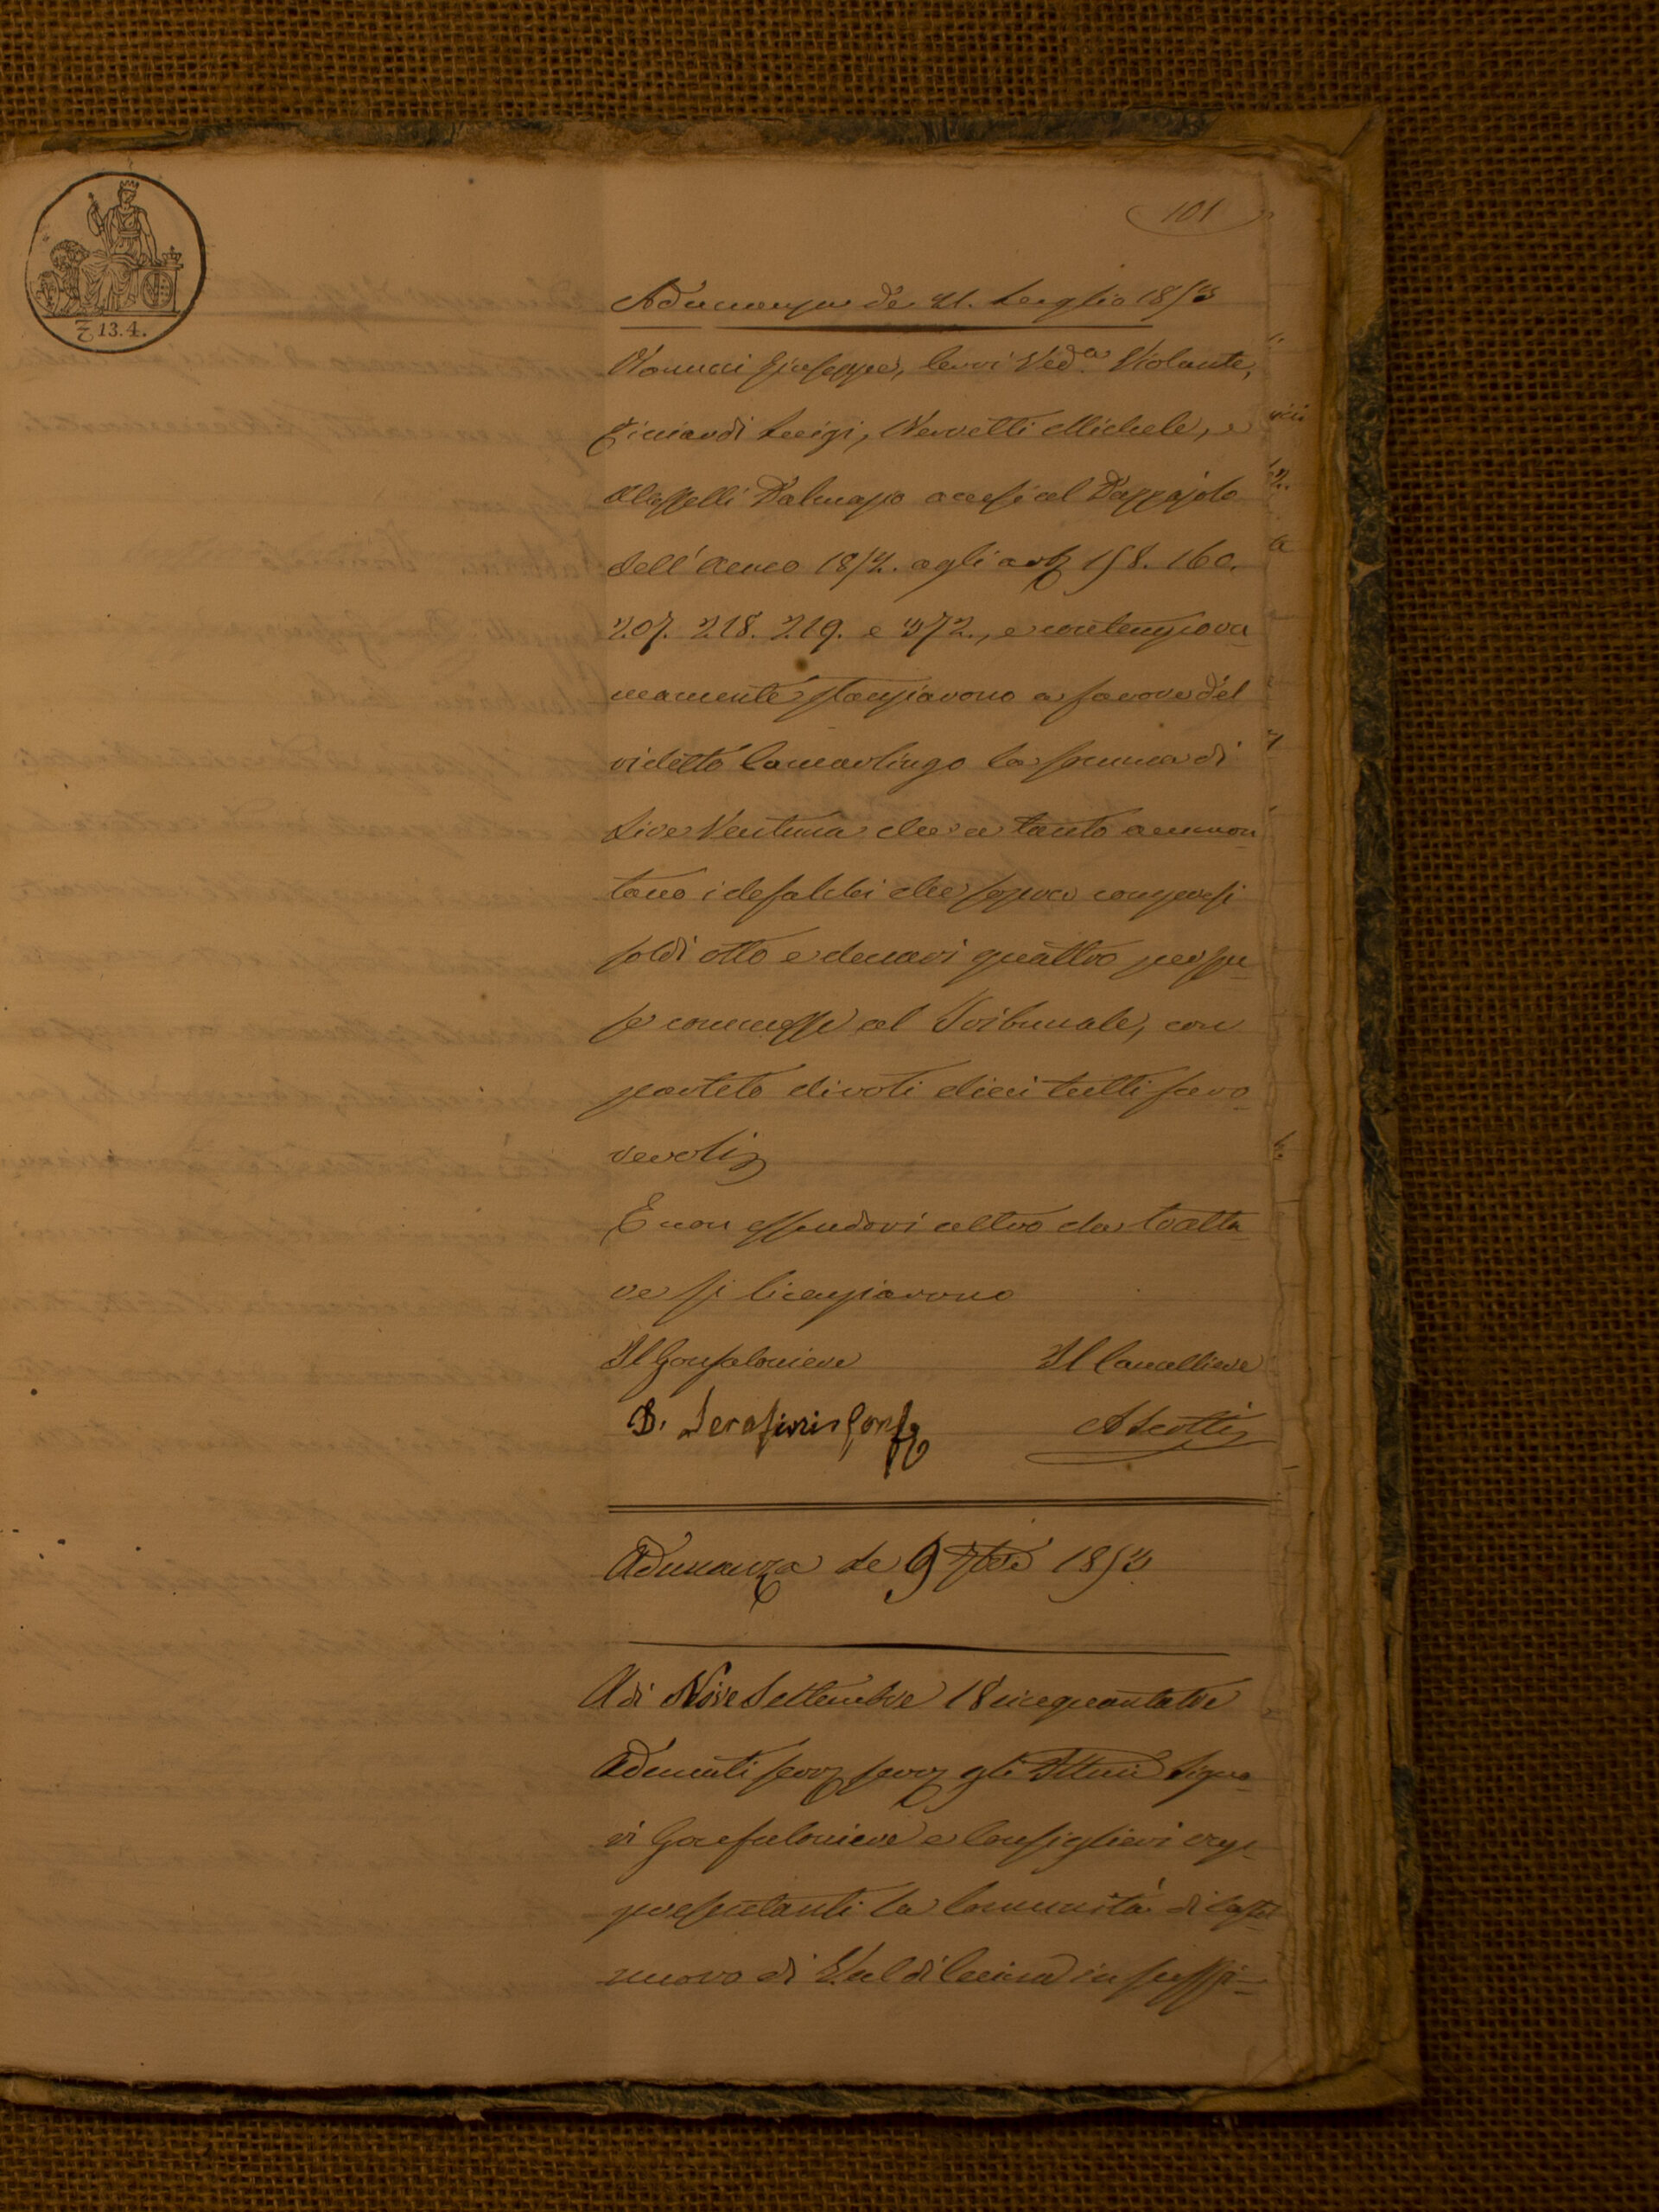 101
₤ 13.4.
Adunanza de 21. Luglio 1853
Nannini Giuseppe, Cerri Ved.a Violante,
Ricciardi Luigi, Nervetti Michele, e
Masselli Dalmazio accesi al Dazzajolo
dell'Anno 1852. agli artz 158. 160.
207. 218. 219. e 372., e contempora
neamente stanziarono a favore del
ridetto Camarlingo la somma di
Lire Ventuna che a tanto ammon
tano i defalchi che sopra compresi
soldi otto e denari quattro per spe
se commesse al Tribunale, con
partito di voti dieci tutti favo
revoli
E non essendovi altro da tratta
re si licenziarono
Il Gonfaloniere Il Cancelliere
D. Serafini Gonfe A Scotti
Adunanza de 9 7bre 1853
A dì Nove Settembre 18cinquantatre
Adunati servz servz gli Illmi Signo
ri Gonfaloniere e Consiglieri rap
presentanti la Comunità di Castel
nuovo di Val di Cecina in suffi